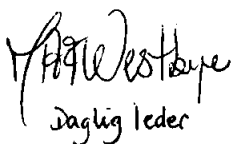 Westbye
Daglig leder